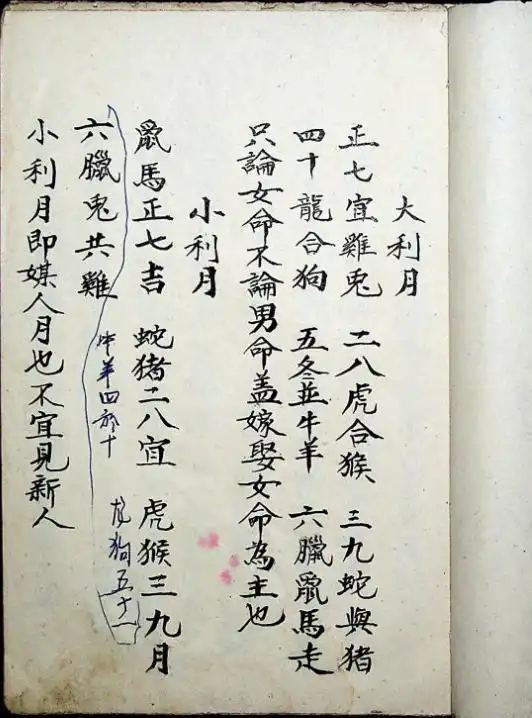 大利月
正七宜雞兎 二八虎合猴 三九蛇與猪
四十龍合狗 五冬並牛羊 六臘鼠馬走
只論女命不論男命盖嫁娶女命為主也
小利月
鼠馬正七吉 蛇猪二八宜 虎猴三九月
六臘兎共雞
牛羊四於十
龙狗五十一
小利月即媒人月也不宜見新人